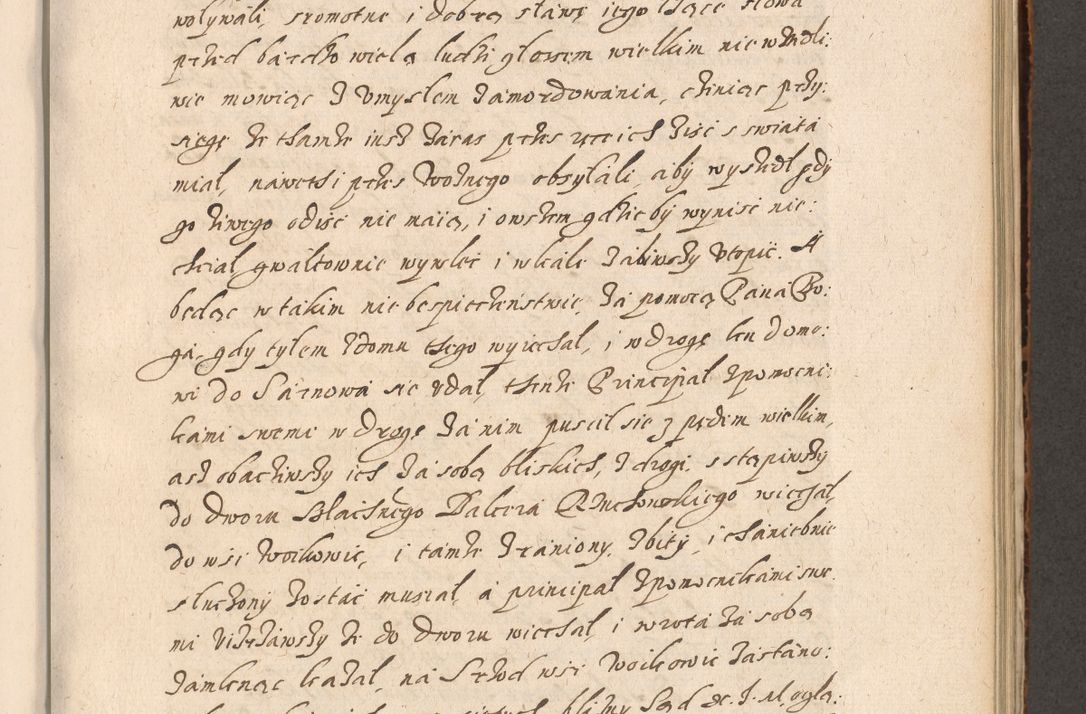 wolywali, sromotne i dobrą sławę iego lżące słowa
przed bardzo wielą ludzi głosem wielkim nie wstydli:
wie mowiąc z umysłem zamordowania, czyniąc przy:
sięgę że thamże iusz zaras przes ręce ich ziść s swiata
miał, nawethi przes Woźnego obsyłali, aby wyszedł gdy
go żiwego odiść nie maią, i owszem gdzieby wyniść nie:
chciał, gwałtownie wywlec i wcale zabiwszy utopić. A
będąc w takim niebespieczeństwie, za pomocą Pana Bo:
ga, gdy tyłem z domu thego wyiechał, i w drogę ku domo:
wi do Sarnowa się udał, thenże Principał z pomocni:
kami swemi w drogę za nim puscił się z pędem wielkim,
asz obacziwszy ich za sobą bliskich, z drogi sstąpiwszy
do dworu Szlachnego Waleria Rzuchowskiego wiechał,
do wsi Woikowic, i tamże zraniony, zbity, i chaniebnie
stłuczony zostać musiał, a principał z pomocnikami swe:
mi uiżrzawszy że do dworu wiechał, i wrota za sobą
zamknąc kazał, na Szrod wsi Woikowic zastano: